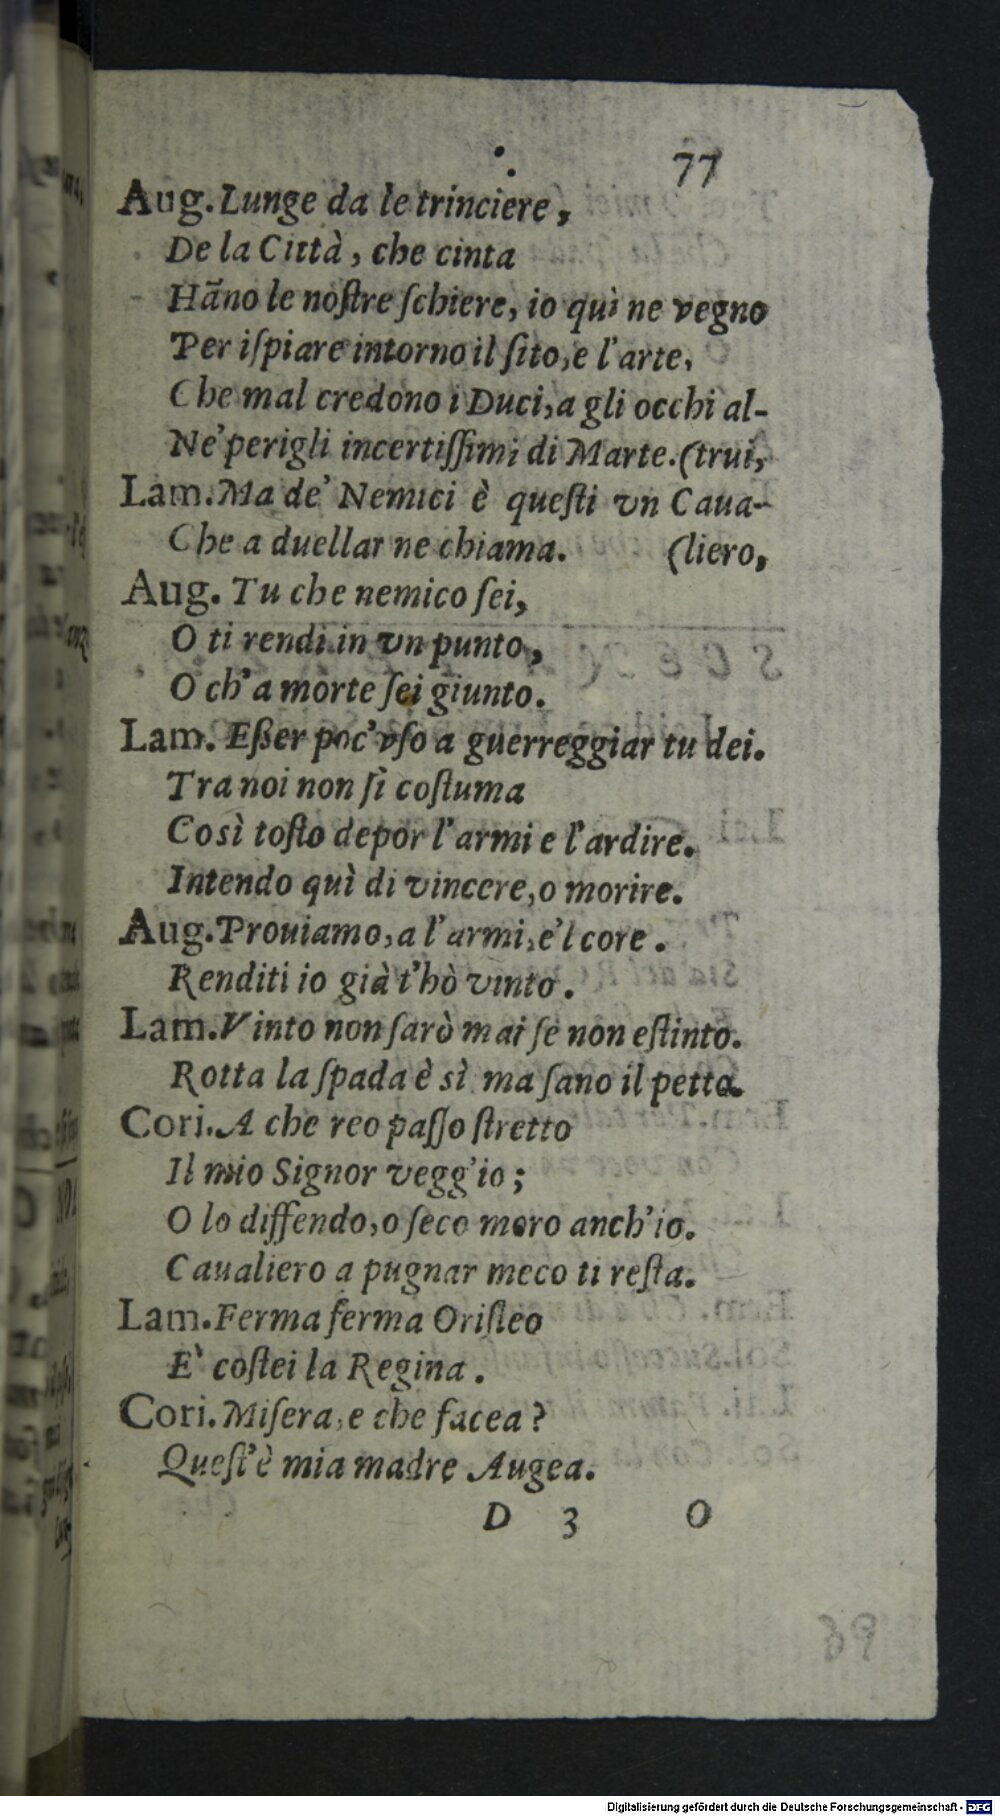 77
Aug. Lunge da le trinciere,
De la Città, che cinta
Hãno le noſtre ſchiere, io quì ne vegno
Per iſpiare intorno il ſito, e l'arte,
Che mal credono i Duci, a gli occhi al-
Ne' perigli incertiſſimi di Marte. (trui,
Lam. Ma de' Nemici è queſti vn Caua-
Che a duellar ne chiama. (liero,
Aug. Tu che nemico ſei,
O ti rendi in vn punto,
O ch'a morte ſei giunto.
Lam. Eßer poc'vſo a guerreggiar tu dei.
Tra noi non ſì coſtuma
Così toſto depor l'armi e l'ardire.
Intendo quì di vincere, o morire.
Aug. Prouiamo, a l'armi, e'l core.
Renditi io già t'hò vinto.
Lam. Vinto non ſarò mai ſe non eſtinto.
Rotta la ſpada è sì ma ſano il petto.
Cori. A che reo paſſo ſtretto
Il mio Signor vegg'io;
O lo diffendo, o ſeco moro anch'io.
Caualiero a pugnar meco ti reſta.
Lam. Ferma ferma Oriſteo
E' coſtei la Regina.
Cori. Miſera, e che facea?
Queſt'è mia madre Augea.
D 3 O
Digitalisierung gefördert durch die Deutsche Forschungsgemeinschaft - DFG